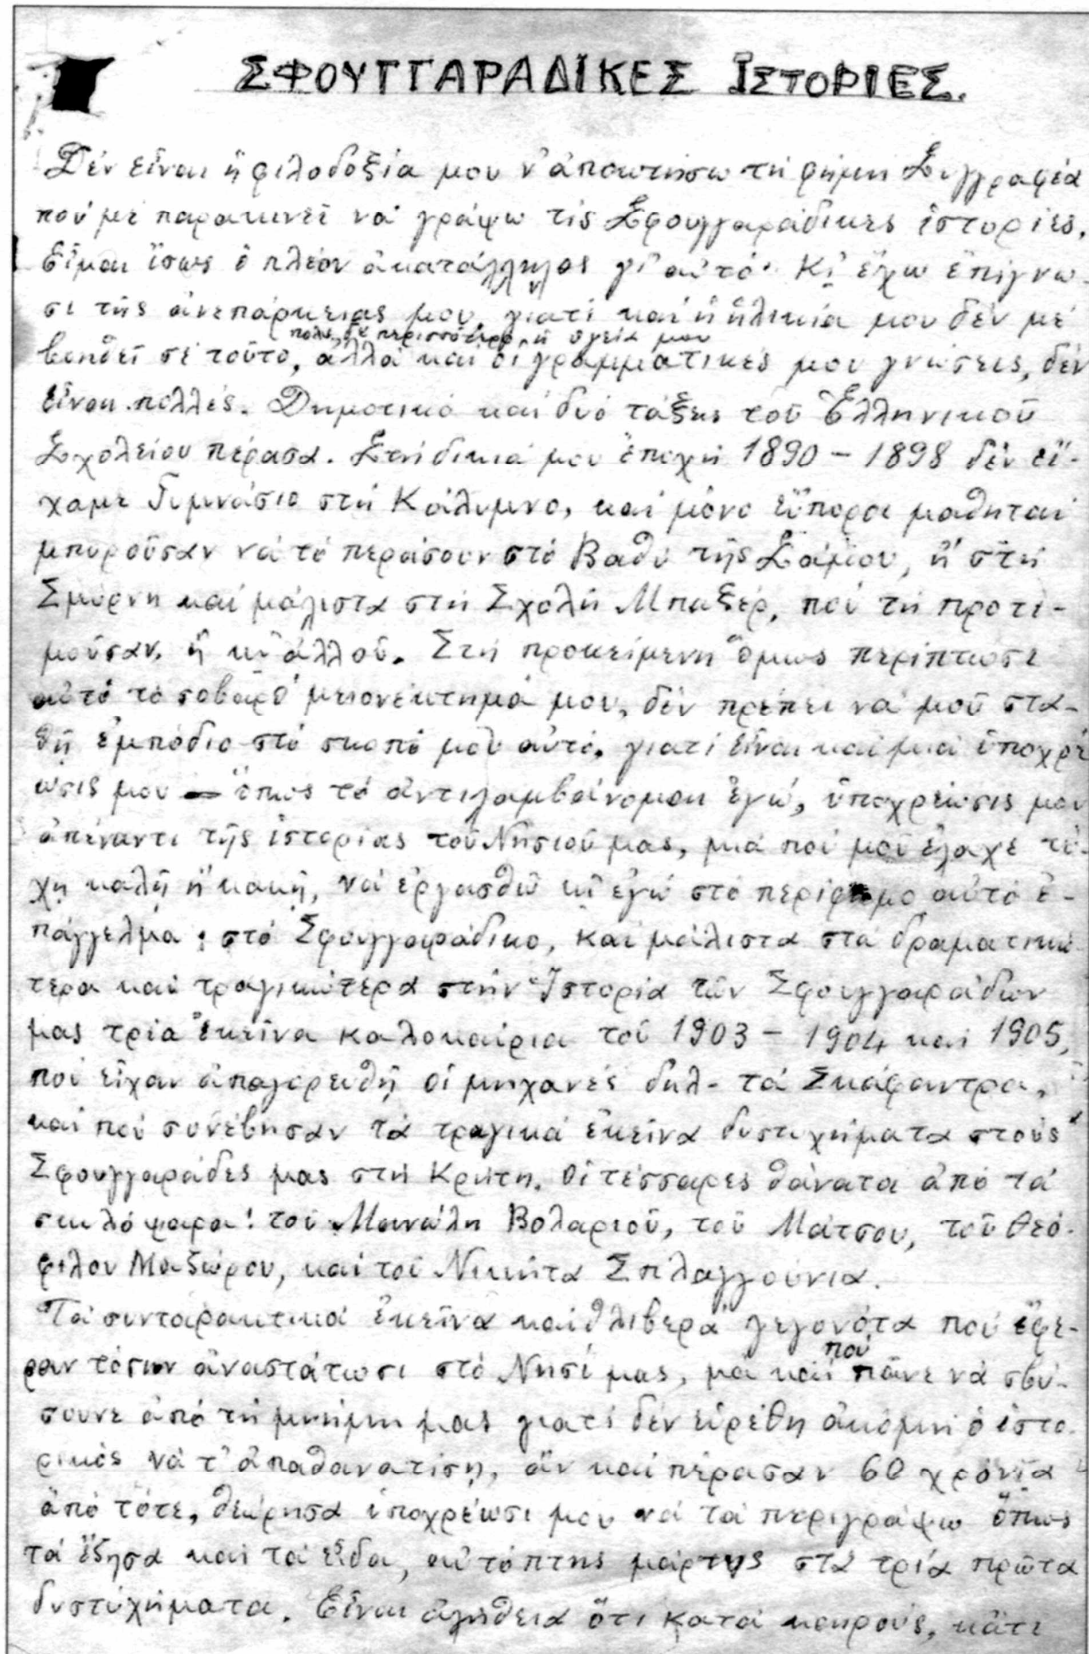 ΣΦΟΥΓΓΑΡΑΔΙΚΕΣ ΙΣΤΟΡΙΕΣ.
Δέν εἶναι ἡ φιλοδοξία μου ν' ἀποκτήσω τή φήμη Συγγραφέα
πού μέ παρακινεῖ νά γράψω τίς Σφουγγαράδικες ἱστορίες.
Εἶμαι ἴσως ὁ πλέον ἀκατάλληλος γι' αὐτό· Κι' ἔχω ἐπίγνω-
σι τῆς ἀνεπάρκειας μου, γιατί καί ἡ ἡλικία μου δέν μέ
πολύ δέ περισσότερο ἡ ὑγεία μου
βοηθεῖ σέ τοῦτο, ἀλλά καί οἱ γραμματικές μου γνώσεις, δέν
εἶναι πολλές. Δημοτικό καί δυό τάξεις τοῦ Ἑλληνικοῦ
Σχολείου πέρασα. Στή δικιά μου ἐποχή 1890 – 1898 δέν εἴ-
χαμε Γυμνάσιο στή Κάλυμνο, καί μόνο εὔποροι μαθηταί
μπορούσαν νά τό περάσουν στό Βαθύ τῆς Σάμου, ἤ στή
Σμύρνη καί μάλιστα στή Σχολή Μπαξέρ, πού τή προτι-
μοῦσαν, ἤ κι' ἀλλοῦ. Στή προκείμενη ὅμως περίπτωσι
αὐτό τό σοβαρό μειονέκτημά μου, δέν πρέπει νά μοῦ στα-
θῇ ἐμπόδιο στό σκοπό μου αὐτό, γιατί εἶναι καί μιά ὑποχρέ
ωσις μου — ὅπως τό ἀντιλαμβάνομαι ἐγώ, ὑποχρέωσις μου
ἀπέναντι τῆς ἱστορίας τοῦ Νησιοῦ μας, μιά πού μοῦ ἔλαχε τύ-
χη καλή ἤ κακή, νά ἐργασθῶ κι' ἐγώ στό περίφημο αὐτό ἐ-
πάγγελμα: στό Σφουγγαράδικο, καί μάλιστα στά δραματικώ
τερα καί τραγικώτερα στήν Ἱστορία τῶν Σφουγγαράδων
μας τρία ἐκεῖνα καλοκαίρια τοῦ 1903 – 1904 καί 1905,
πού εἶχαν ἀπαγορευθῆ οἱ μηχανές δηλ- τά Σκάφαντρα,
καί πού συνέβησαν τά τραγικά ἐκεῖνα δυστυχήματα στούς
Σφουγγαράδες μας στή Κρήτη. Οἱ τέσσαρες θάνατοι ἀπό τά
σκυλόψαρα! τοῦ Μανώλη Βολαριοῦ, τοῦ Μάτσου, τοῦ Θεό-
φιλου Μαζώρου, καί τοῦ Νικήτα Σπλαγγούνια.
Τά συνταρακτικά ἐκεῖνα καί θλιβερά γεγονότα πού ἔφε-
ραν τόσην ἀναστάτωσι στό Νησί μας, μά καί πού πᾶνε νά σβύ-
σουνε ἀπό τή μνήμη μας γιατί δέν εὑρέθη ἀκόμη ὁ ἱστο-
ρικός νά τ' ἀπαθανατίσῃ, ἄν καί πέρασαν 60 χρόνια
ἀπό τότε, θεώρησα ὑποχρέωσι μου νά τά περιγράψω ὅπως
τά ἔζησα καί τά εἶδα, αὐτόπτης μάρτυς στά τρία πρῶτα
δυστυχήματα. Εἶναι ἀλήθεια ὅτι κατά καιρούς, κάτι